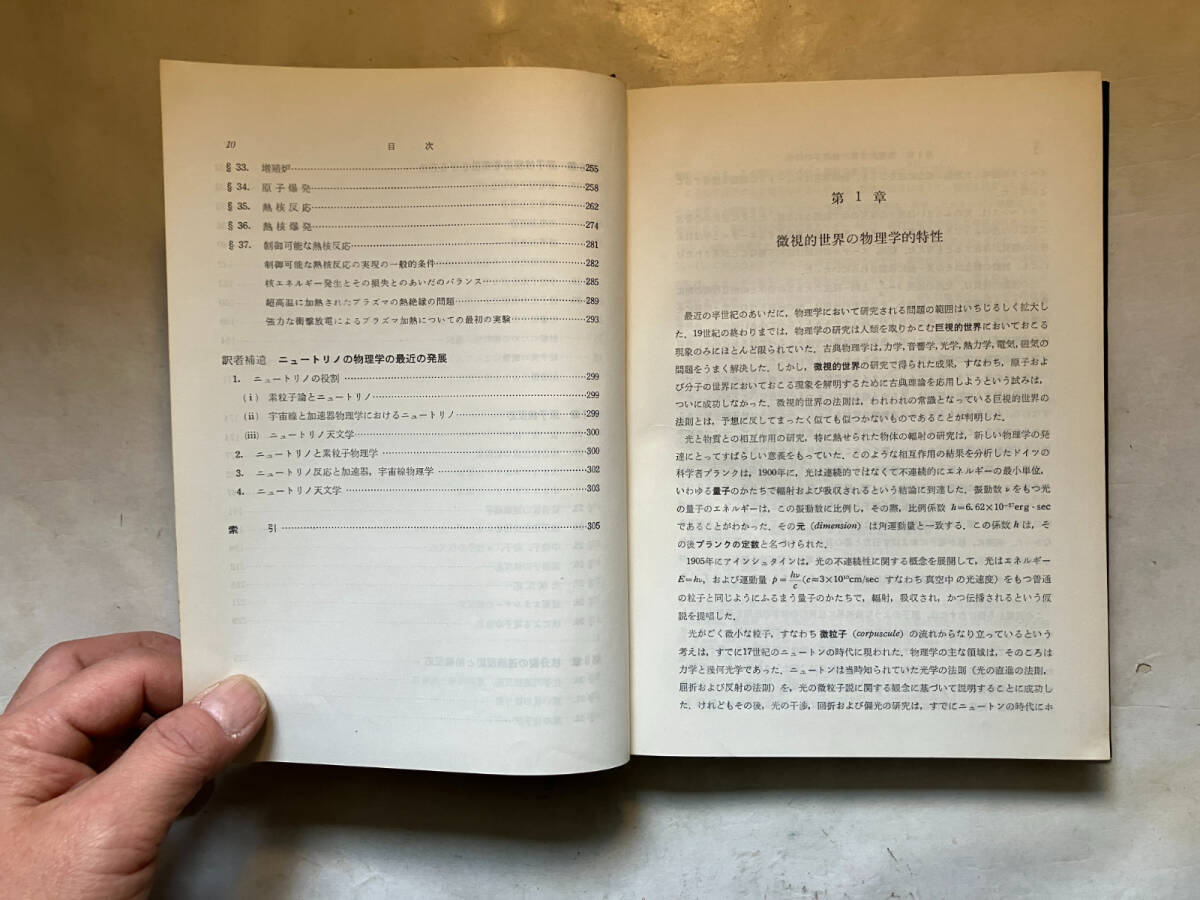 10 目 次
§ 33. 増殖炉……255
§ 34. 原子爆発……258
§ 35. 熱核反応……262
§ 36. 熱核爆発……274
§ 37. 制御可能な熱核反応……281
制御可能な熱核反応の実現の一般的条件……282
核エネルギー発生とその損失とのあいだのバランス……285
超高温に加熱されたプラズマの熱絶縁の問題……289
強力な衝撃放電によるプラズマ加熱についての最初の実験……293
訳者補遺 ニュートリノの物理学の最近の発展
1. ニュートリノの役割……299
(i) 素粒子論とニュートリノ……299
(ii) 宇宙線と加速器物理学におけるニュートリノ……299
(iii) ニュートリノ天文学……300
2. ニュートリノと素粒子物理学……300
3. ニュートリノ反応と加速器，宇宙線物理学……302
4. ニュートリノ天文学……303
索 引……305
第 1 章
微視的世界の物理学的特性
最近の半世紀のあいだに，物理学において研究される問題の範囲はいちじるしく拡大し
た．19世紀の終わりまでは，物理学の研究は人類を取りかこむ巨視的世界においておこる
現象のみにほとんど限られていた．古典物理学は，力学，音響学，光学，熱力学，電気，磁気の
問題をうまく解決した．しかし，微視的世界の研究で得られた成果，すなわち，原子およ
び分子の世界においておこる現象を解明するために古典理論を応用しようという試みは，
ついに成功しなかった．微視的世界の法則は，われわれの常識となっている巨視的世界の
法則とは，予想に反してまったく似ても似つかないものであることが判明した．
光と物質との相互作用の研究，特に熱せられた物体の輻射の研究は，新しい物理学の発
達にとってすばらしい意義をもっていた．このような相互作用の結果を分析したドイツの
科学者プランクは，1900年に，光は連続的ではなくて不連続的にエネルギーの最小単位，
いわゆる量子のかたちで輻射および吸収されるという結論に到達した．振動数 ν をもつ光
の量子のエネルギーは，この振動数に比例し，その際，比例係数 h=6.62×10⁻²⁷erg·sec
であることがわかった．その元（dimension）は角運動量と一致する．この係数 h は，そ
の後プランクの定数と名づけられた．
1905年にアインシュタインは，光の不連続性に関する概念を展開して，光はエネルギー
E=hν，および運動量 p=hν/c（c=3×10¹⁰cm/sec すなわち真空中の光速度）をもつ普通
の粒子と同じようにふるまう量子のかたちで，輻射，吸収され，かつ伝播されるという仮
説を提唱した．
光がごく微小な粒子，すなわち微粒子（corpuscule）の流れからなり立っているという
考えは，すでに17世紀のニュートンの時代に現われた．物理学の主な領域は，そのころは
力学と幾何光学であった．ニュートンは当時知られていた光学の法則（光の直進の法則，
屈折および反射の法則）を，光の微粒子説に関する観念に基づいて説明することに成功し
た．けれどもその後，光の干渉，回折および偏光の研究は，すでにニュートンの時代にホ